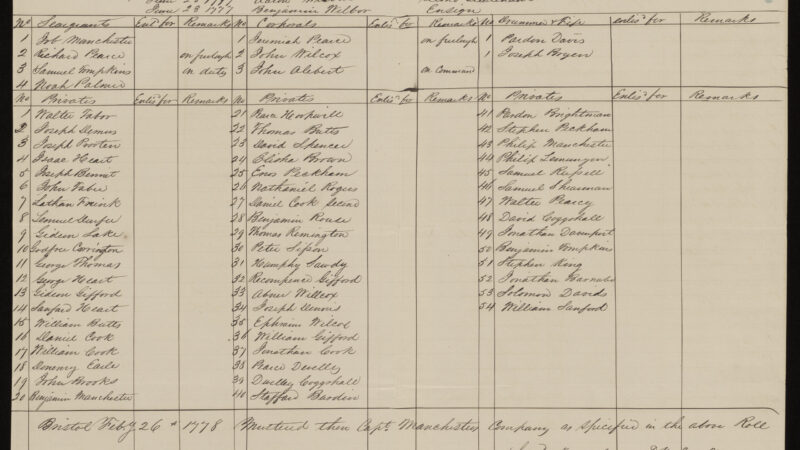 June 28 1777 Benjamin Wilbor Ensign
No Seargants Entd for Remarks No Corporals Entd for Remarks No Drummer & Fife entd for Remarks
1 Job Manchester 1 Jerimiah Pearce on furlough 1 Pardon Davis
2 Richard Pearce on furlough 2 John Wilcox 1 Joseph Rogers
3 Samuel Tompkins on duty 3 John Alebert on Command
4 Noah Palmer
No Privates Entd for Remarks No Privates Entd for Remarks No Privates Entd for Remarks
1 Walter Tabor 21 Hopwill 41 Pardon Brightman
2 Joseph Demus 22 Thomas Butts 42 Stephen Peckham
3 Joseph 23 David Spencer 43 Philip Manchester
4 Isaac Heart 24 Elisha Brown 44 Philip
5 Joseph Bennet 25 Enos Peckham 45 Samuel Russell
6 John Tabre 26 Nathaniel Rogers 46 Samuel Shearman
7 Lathan 27 Daniel Cook Second 47 Walter Pearcy
8 Lemuel Durfee 28 Benjamin Rouse 48 David Coggshall
9 Gideon Lake 29 Thomas Remington 49 Jonathan Davenport
10 Godfree Corrington 30 Peter Sisson 50 Benjamin Tompkins
11 George Thomas 31 Humphy Sawdy 51 Stephen King
12 George Heart 32 Recompence Gifford 52 Jonathan Barnabe
13 Gideon Gifford 33 Abner Willcox 53 Solomon Davids
14 Sanford Heart 34 Joseph Dennis 54 William Sanford
15 William Butts 35 Ephraim Wilcox
16 Daniel Cook 36 William Gifford
17 William Cook 37 Jonathan Cook
18 Earle 38 Pearce
19 John Brooks 39 Coggshall
20 Benjamin Manchester 40 Stafford Borden
Bristol Feby 26th 1778 Mustered then Capt. Manchesters Company as Spicified in the above Roll